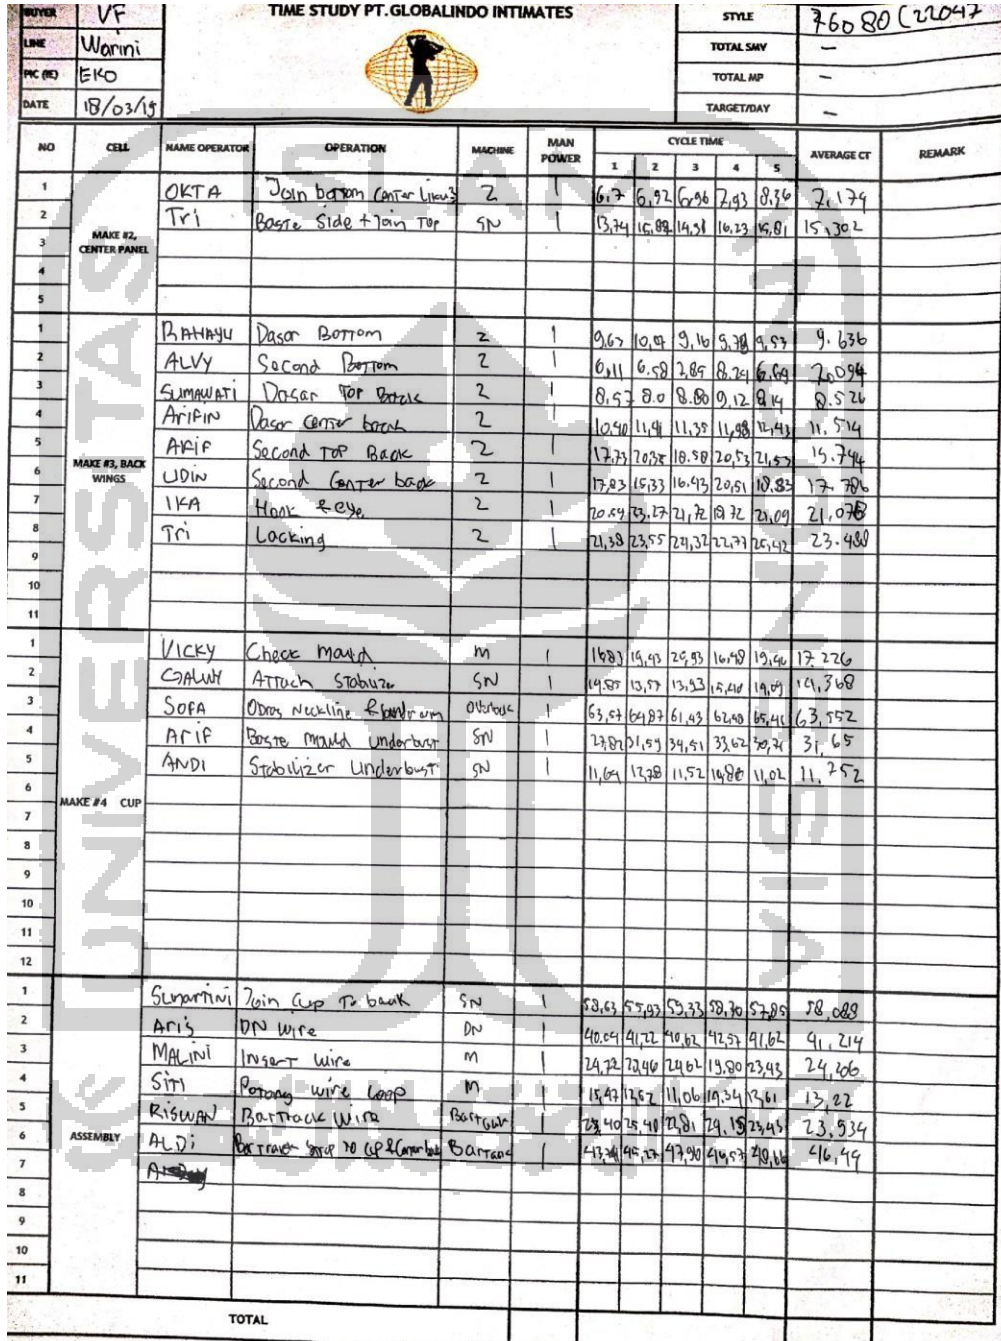 BUYER VF TIME STUDY PT.GLOBALINDO INTIMATES STYLE 76080 (22047
LINE Warini TOTAL SMV -
PIC (IE) EKO TOTAL MP -
DATE 18/03/19 TARGET/DAY -
NO CELL NAME OPERATOR OPERATION MACHINE MAN POWER CYCLE TIME AVERAGE CT REMARK
1 2 3 4 5
MAKE #2, CENTER PANEL
1 OKTA Join bottom Center 2 1 6,7 6,92 6,96 7,93 8,36 7,174
2 Tri Baste Side + Join Top SN 1 13,74 14,98 16,23 15,81 15,302
3
4
5
MAKE #3, BACK WINGS
1 RAHAYU Dasar Bottom 2 1 9,63 10,07 9,16 9,78 9,53 9.636
2 ALVY Second Bottom 2 1 6,11 6.58 7,85 8.24 6,69
3 SUMAWATI Dasar Top Back 2 1 8,57 8.0 8.80 9,12 8,14 8.526
4 ARIFIN Dasar Center back 2 1 10,40 11,41 11,35 11,98 12,43 11.514
5 ARIF Second TOP Back 2 1 17,73 20,38 18.58 20,53 21,53 15.744
6 UDIN Second Center back 2 1 17,83 15,33 16.43 20,51 18,83 17.786
7 IKA Hook & eye 2 1 20.59 23,27 21,72 18,72 21,09 21,078
8 Tri Lacking 2 1 21,38 23,55 24,32 22,77 25,42 23.488
9
10
11
MAKE #4 CUP
1 VICKY Check Mould M 1 16,83 16,48 19,46 17,226
2 GALUH Attach Stabilize SN 1 14,85 13,57 13,93 15,40 14,09 14,368
3 SOFA Obras Neckline & underarm 1 63,57 64,87 61,43 62,48 65,41 63,552
4 Arif Baste Mould Underbust SN 1 27,82 31,59 34,51 33,62 30,71 31,65
5 ANDI Stabilizer Underbust SN 1 11,64 12,78 11,52 11,02 11,752
6
7
8
9
10
11
12
ASSEMBLY
1 Sumartini Join Cup To back SN 1 58,63 55,93 59,33 58,70 57,85 58,088
2 Aris DN Wire DN 1 40.04 41,22 40,62 42,57 41,62 41,214
3 MALINI Insert Wire M 1 24,72 24,62 19,80 23,43 24,206
4 SITI Potong Wire Loop M 1 15,47 12,62 11,06 13,61 13,22
5 RISWAN Bartrack Wire Bartack 1 25,40 22,81 23,43 23,534
6 ALDI Bartrack Strap To Cup & Bartack 1 45,27 47,90 46,57 48,66 46,49
7
8
9
10
11
TOTAL
UNIVERSITAS
ISLAM